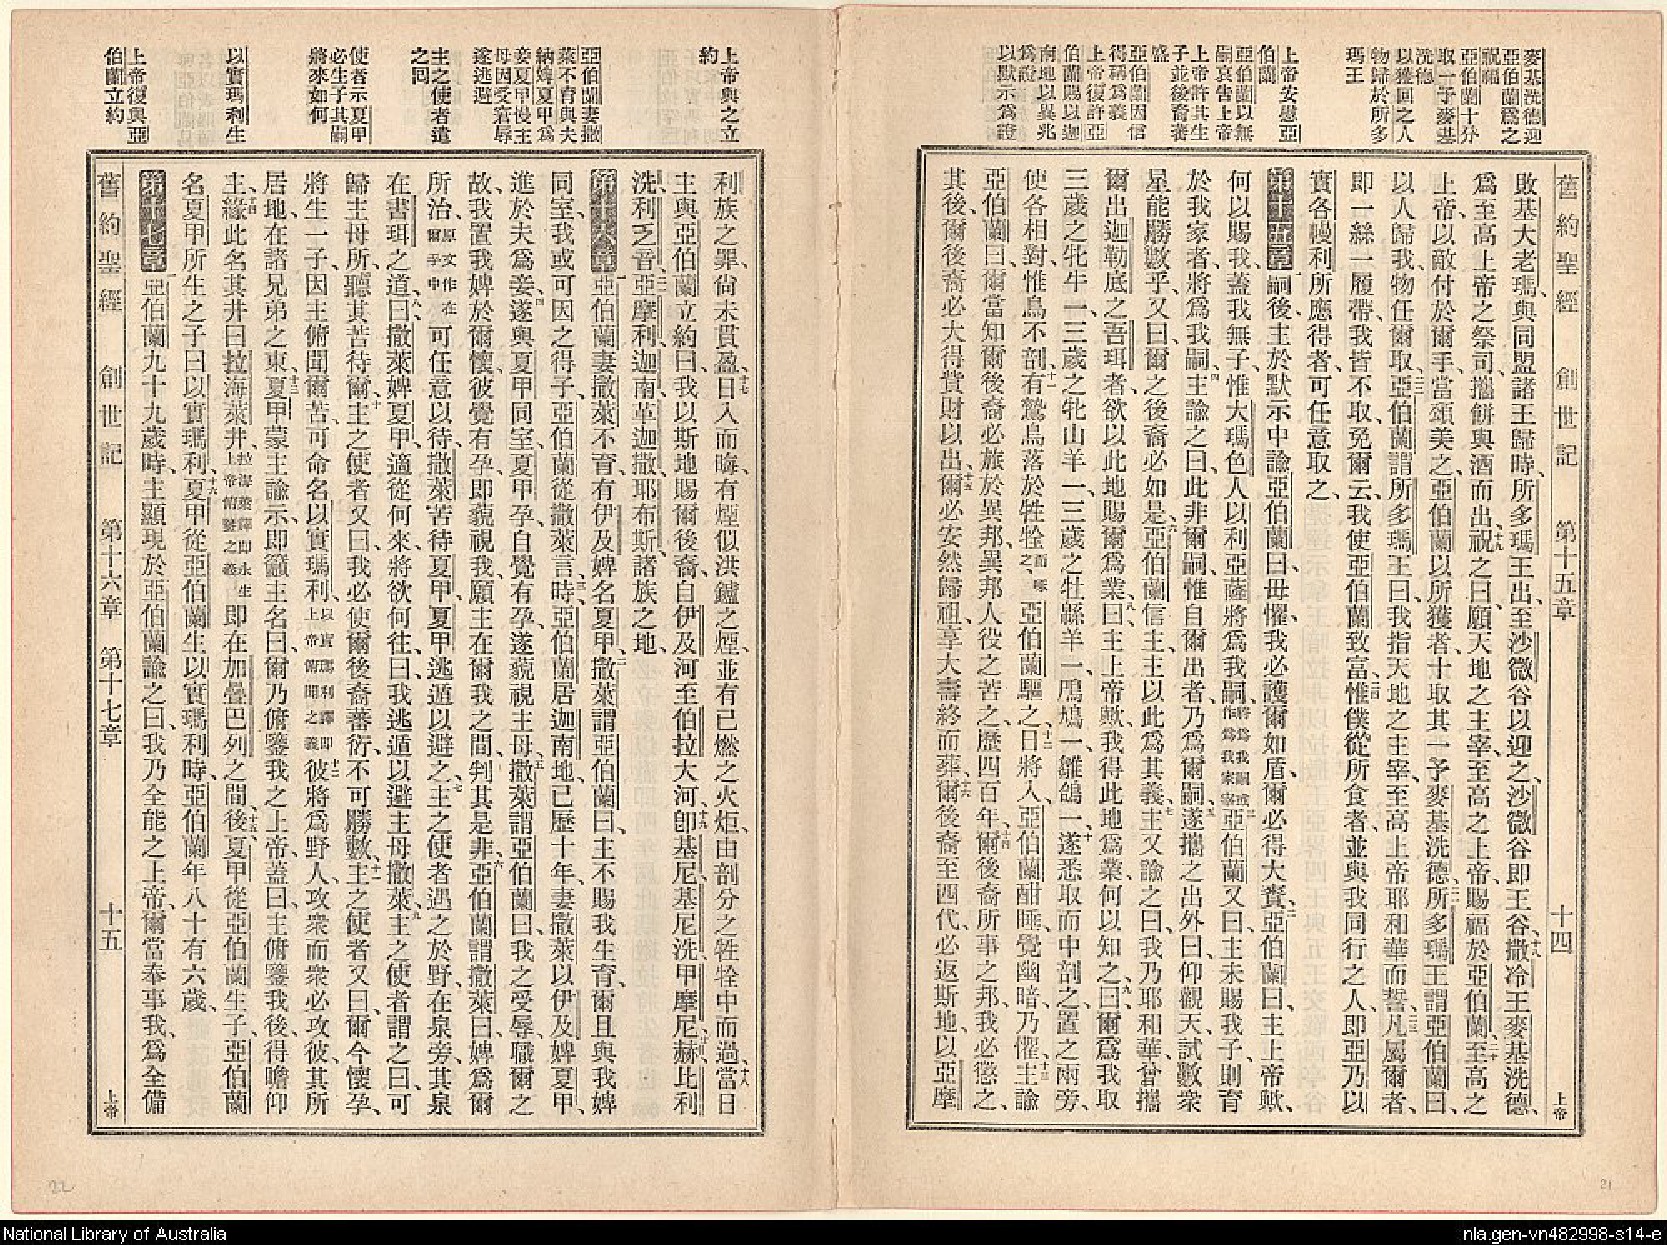 麥基洗德迎
亞伯蘭爲之
祝福
亞伯蘭十分
取一予麥基
洗德
以獲回之人
物歸於所多
瑪王
上帝安慰亞
伯蘭
亞伯蘭以無
嗣哀告上帝
上帝許其生
子並後裔蕃
盛
亞伯蘭因信
得稱爲義
上帝復許亞
伯蘭賜以迦
南地以異兆
爲證
以默示爲證
舊約聖經 創世記 第十五章 十四 上帝
敗基大老瑪與同盟諸王歸時、所多瑪王出至沙微谷以迎之、沙微谷卽王谷、十八撒冷王麥基洗德、
爲至高上帝之祭司、攜餅與酒而出、十九祝之曰、願天地之主宰、至高之上帝、賜福於亞伯蘭、二十至高之
上帝、以敵付於爾手、當頌美之、亞伯蘭以所獲者、十取其一予麥基洗德、二一所多瑪王謂亞伯蘭曰、
以人歸我、物任爾取、二二亞伯蘭謂所多瑪王曰、我指天地之主宰、至高上帝耶和華而誓、二三凡屬爾者、
卽一絲一履帶、我皆不取、免爾云、我使亞伯蘭致富、二四惟僕從所食者、並與我同行之人、卽亞乃以
實各幔利所應得者、可任意取之、
第十五章 一嗣後、主於默示中諭亞伯蘭曰、毋懼、我必護爾如盾、爾必得大賚、二亞伯蘭曰、主上帝歟、
何以賜我、蓋我無子、惟大瑪色人以利亞薩將爲我嗣、將爲我嗣或作爲我家宰三亞伯蘭又曰、主未賜我子、則育
於我家者、將爲我嗣、四主諭之曰、此非爾嗣、惟自爾出者、乃爲爾嗣、五遂攜之出外曰、仰觀天、試數衆
星、能勝數乎、又曰、爾之後裔必如是、六亞伯蘭信主、主以此爲其義、七主又諭之曰、我乃耶和華、曾攜
爾出迦勒底之吾珥者、欲以此地賜爾爲業、八曰、主上帝歟、我得此地爲業、何以知之、九曰、爾爲我取
三歲之牝牛一、三歲之牝山羊一、三歲之牡緜羊一、鳲鳩一、雛鴿一、十遂悉取而中剖之、置之兩旁、
使各相對、惟鳥不剖、十一有鷙鳥落於牲牷之上而啄亞伯蘭驅之、十二日將入、亞伯蘭酣睡、覺幽暗、乃懼、十三主諭
亞伯蘭曰、爾當知爾後裔必旅於異邦、異邦人役之苦之、歷四百年、十四爾後裔所事之邦、我必懲之、
其後、爾後裔必大得貲財以出、十五爾必安然歸祖、享大壽終而葬、十六爾後裔至四代、必返斯地、以亞摩
上帝與之立
約
亞伯蘭妻撒
萊不育與夫
納婢夏甲爲
妾夏甲侮主
母因受窘辱
遂逃避
主之使者遣
之回
使者示夏甲
必生子其嗣
將來如何
以實瑪利生
上帝復與亞
伯蘭立約
利族之罪、尙未貫盈、十七日入而晦、有煙似洪鑪之煙、並有已燃之火炬、由剖分之牲牷中而過、十八當日
主與亞伯蘭立約曰、我以斯地賜爾後裔、自伊及河至伯拉大河、十九卽基尼基尼洗甲摩尼、二十赫比利
洗利乏音、二一亞摩利迦南革迦撒耶布斯諸族之地、
第十六章 一亞伯蘭妻撒萊不育、有伊及婢名夏甲、二撒萊謂亞伯蘭曰、主不賜我生育、爾且與我婢
同室、我或可因之得子、亞伯蘭從撒萊言、三時亞伯蘭居迦南地、已歷十年、妻撒萊以伊及婢夏甲、
進於夫爲妾、四遂與夏甲同室、夏甲孕、自覺有孕、遂藐視主母、五撒萊謂亞伯蘭曰、我之受辱、職爾之
故、我置我婢於爾懷、彼覺有孕、卽藐視我、願主在爾我之間、判其是非、六亞伯蘭謂撒萊曰、婢爲爾
所治、原文作在爾手中可任意以待、撒萊苦待夏甲、夏甲逃遁以避之、七主之使者遇之於野、在泉旁、其泉
在書珥之道、八曰、撒萊婢夏甲、適從何來、將欲何往、曰、我逃遁以避主母撒萊、九主之使者謂之曰、可
歸主母所、聽其苦待爾、十主之使者又曰、我必使爾後裔蕃衍、不可勝數、十一主之使者又曰、爾今懷孕、
將生一子、因主俯聞爾苦、可命名以實瑪利、以實瑪利譯卽上帝俯聞之義十二彼將爲野人、攻衆而衆必攻彼、其所
居地、在諸兄弟之東、十三夏甲蒙主諭示、卽籲主名曰、爾乃俯鑒我之上帝、蓋曰、主俯鑒我後、得瞻仰
主、十四緣此名其井曰拉海萊井、拉海萊譯卽永生上帝俯鑒之義卽在加疊巴列之間、十五後夏甲從亞伯蘭生子、亞伯蘭
名夏甲所生之子曰以實瑪利、十六夏甲從亞伯蘭生以實瑪利時、亞伯蘭年八十有六歲、
第十七章 一亞伯蘭九十九歲時、主顯現於亞伯蘭、諭之曰、我乃全能之上帝、爾當奉事我、爲全備
舊約聖經 創世記 第十六章 第十七章 十五 上帝
22
21
National Library of Australia
nla.gen-vn482998-s14-e